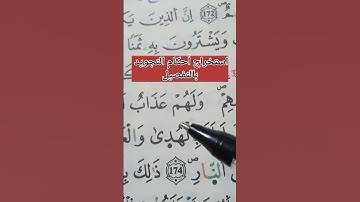 ١٧٢ إِنَّ ٱلَّذِينَ
وَيَشْتَرُونَ بِهِۦ ثَمَنًا
استخراج احكام التجويد
بالتفصيل
وَلَهُمْ عَذَابٌ
بِٱلْهُدَىٰ
ٱلنَّارِ ١٧٤ ذَٰلِكَ